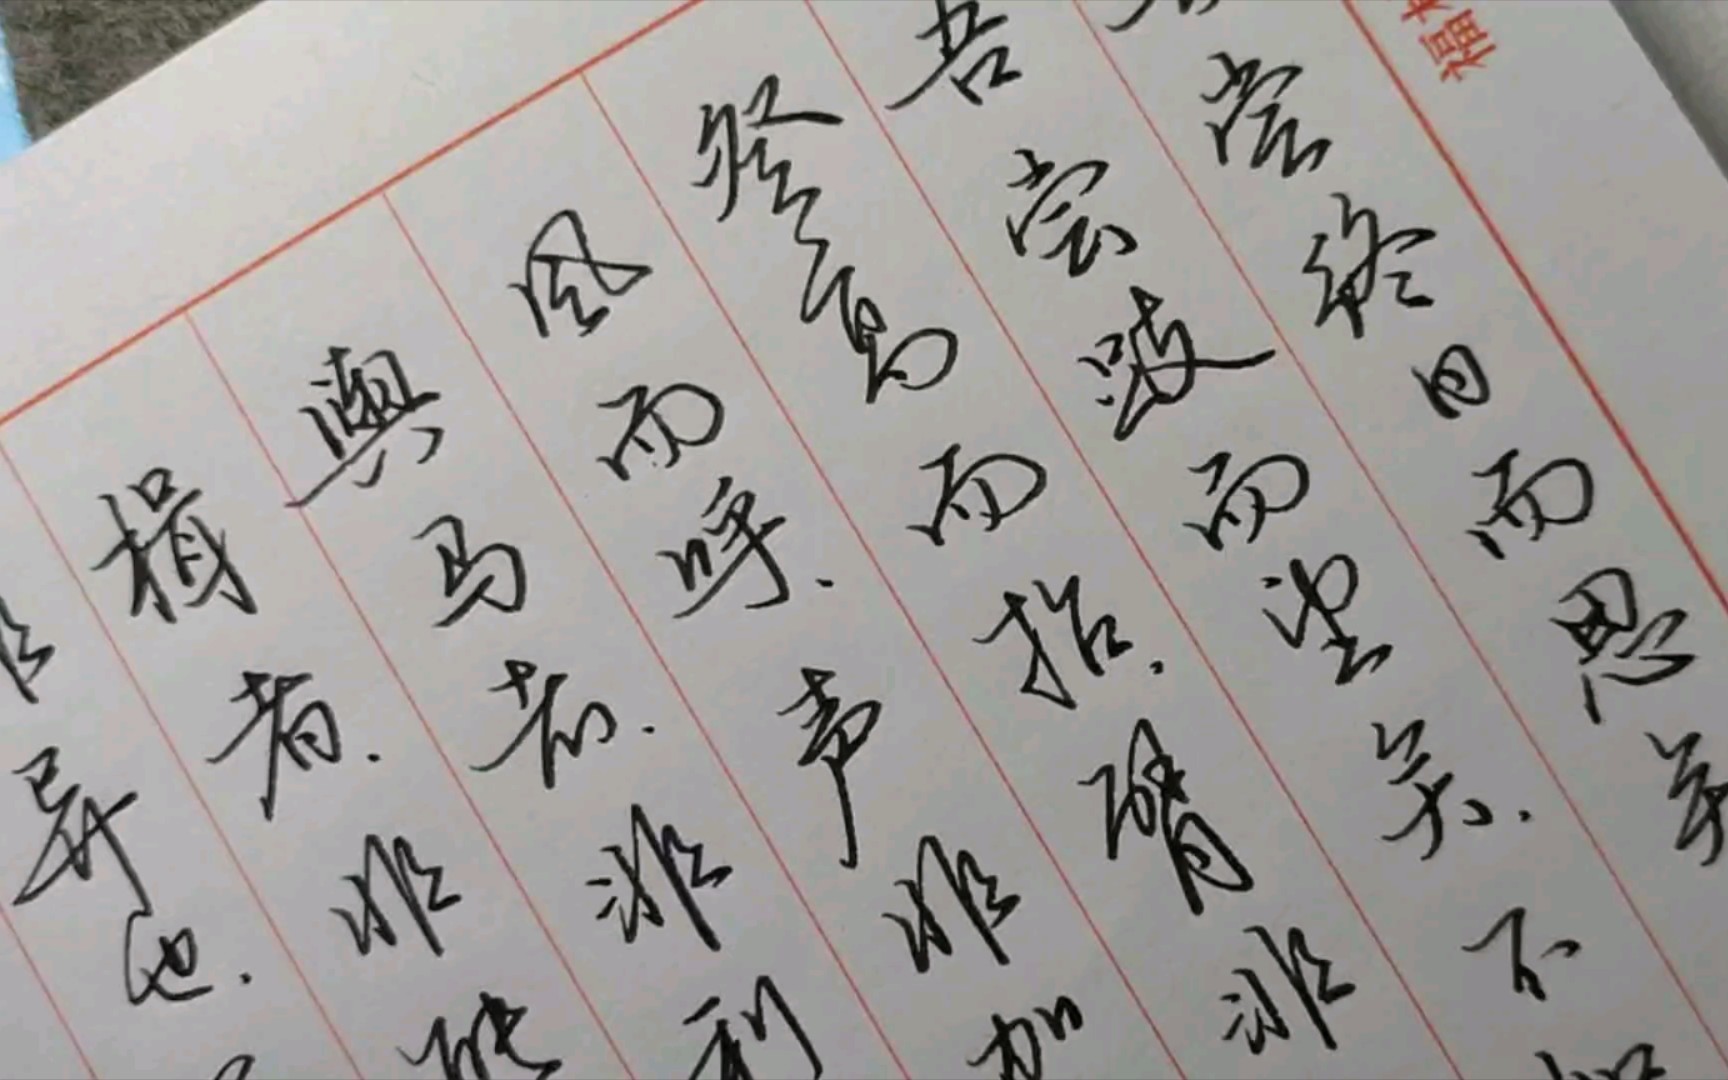 尝终日而思矣
吾尝跂而望矣.不如
登高而招.臂非
风而呼.声非加
舆马者.非利
楫者.非能
非异也.